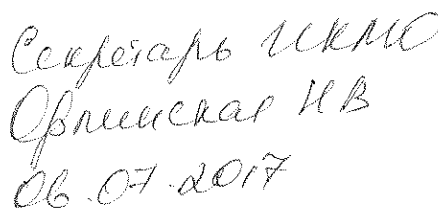 Секретарь ИКМО
Орлинская НВ
06.07.2017